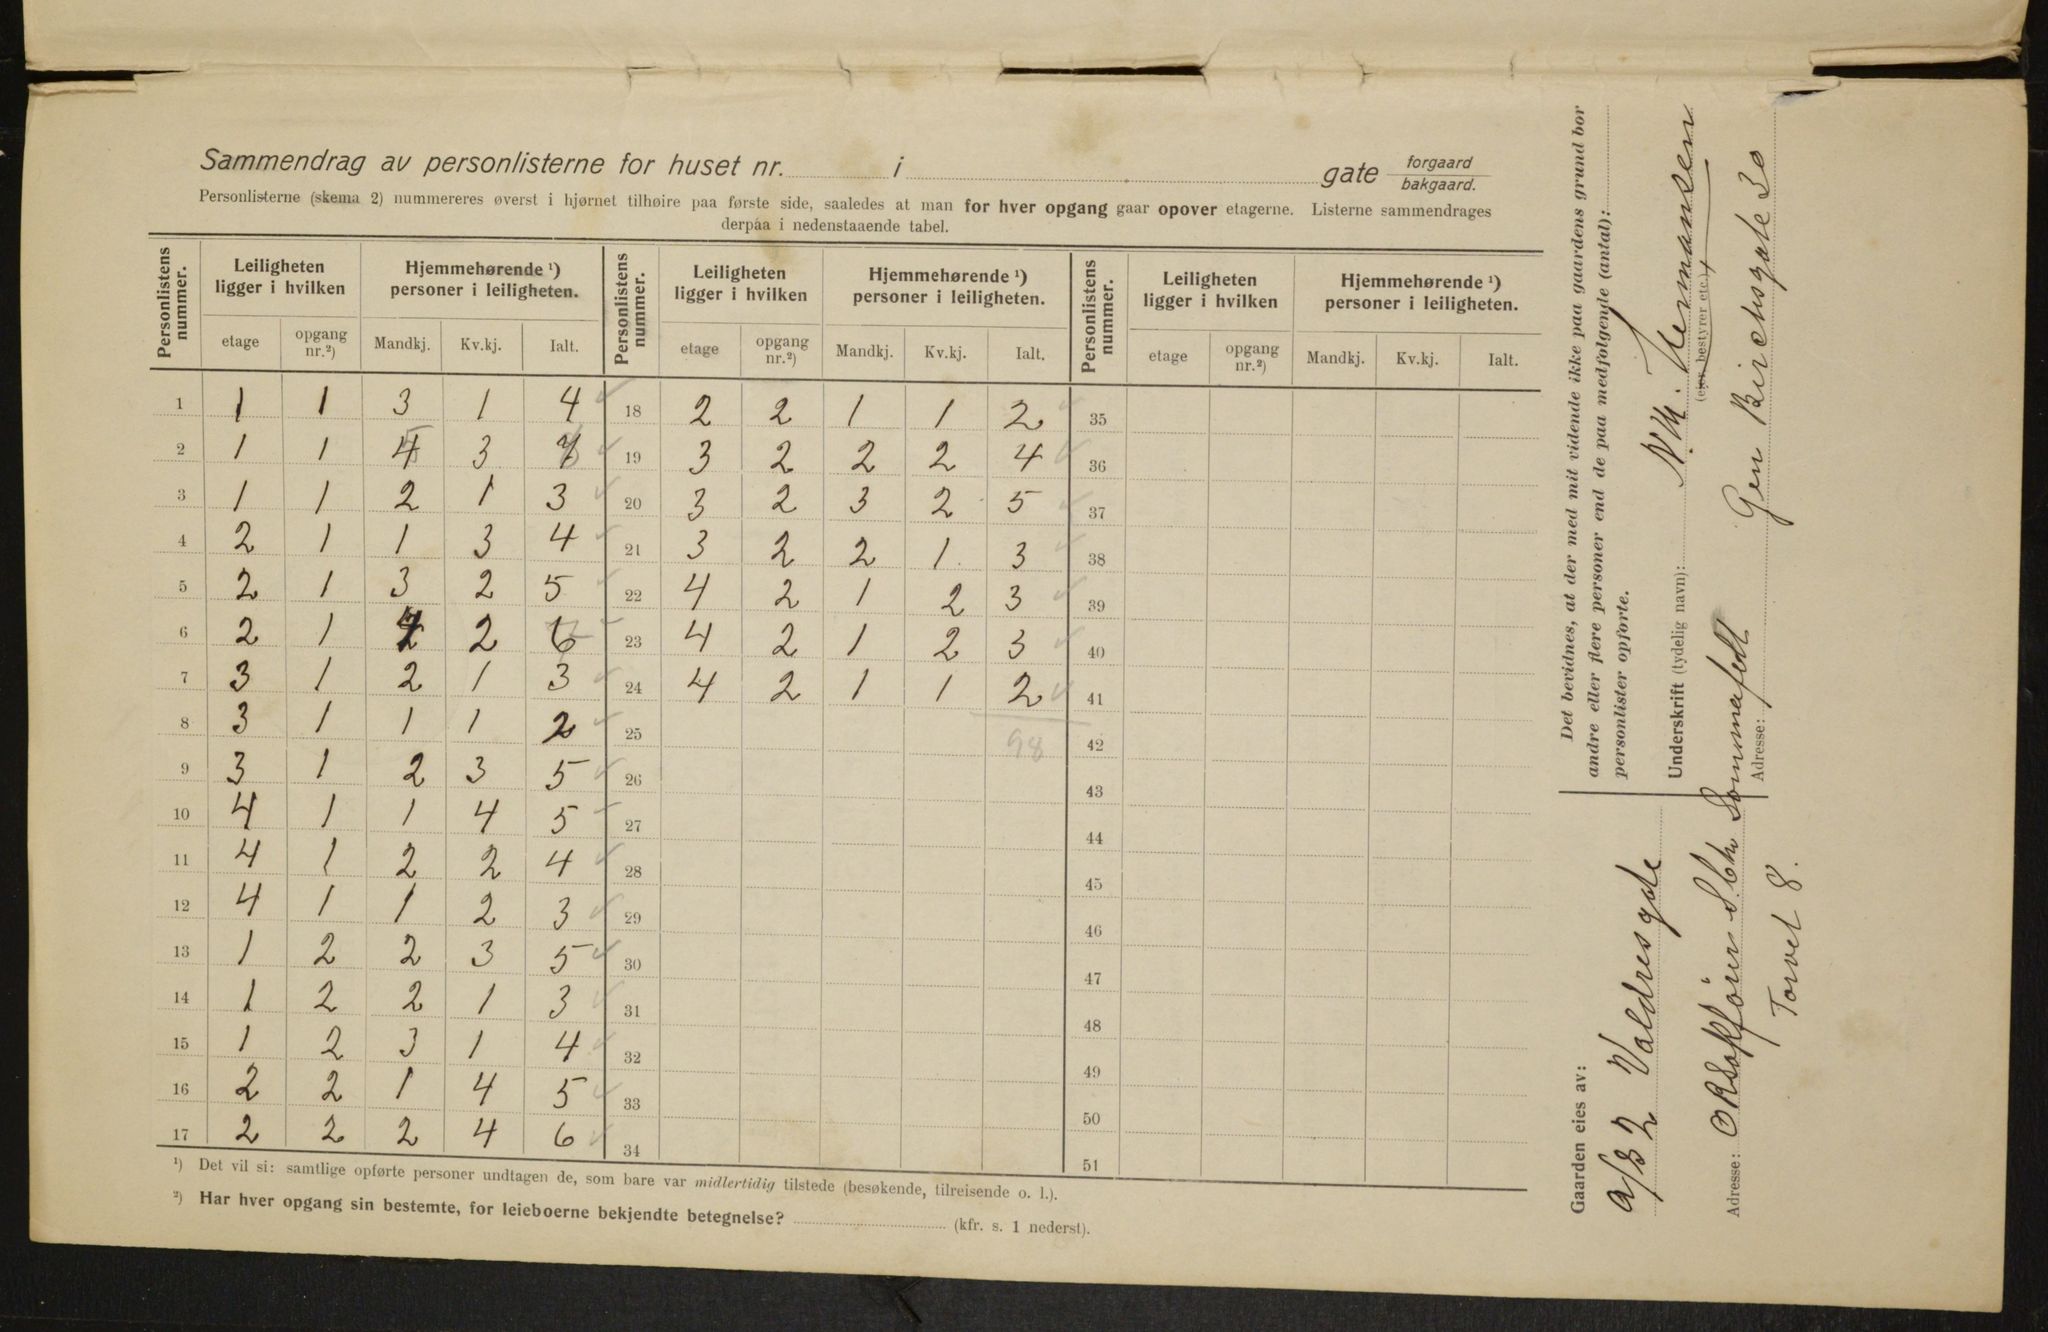 Sammendrag av personlisterne for huset nr. i gate forgaard bakgaard.
Personlisterne (skema 2) nummereres øverst i hjørnet tilhøire paa første side, saaledes at man for hver opgang gaar opover etagerne. Listerne sammendrages
derpaa i nedenstaaende tabel.
Personlistens nummer. Leiligheten ligger i hvilken Hjemmehørende ¹) personer i leiligheten. Personlistens nummer. Leiligheten ligger i hvilken Hjemmehørende ¹) personer i leiligheten. Personlistens nummer. Leiligheten ligger i hvilken Hjemmehørende ¹) personer i leiligheten.
etage opgang nr.²) Mandkj. Kv.kj. Ialt. etage opgang nr.²) Mandkj. Kv.kj. Ialt. etage opgang nr.²) Mandkj. Kv.kj. Ialt.
1 1 1 3 1 4 18 2 2 1 1 2 35
2 1 1 3 19 3 2 2 2 4 36
3 1 1 2 1 3 20 3 2 3 2 5 37
4 2 1 1 3 4 21 3 2 2 1 3 38
5 2 1 3 2 5 22 4 2 1 2 3 39
6 2 1 4 2 6 23 4 2 1 2 3 40
7 3 1 2 1 3 24 4 2 1 1 2 41
8 3 1 1 1 2 25 98 42
9 3 1 2 3 5 26 43
10 4 1 1 4 5 27 44
11 4 1 2 2 4 28 45
12 4 1 1 2 3 29 46
13 1 2 2 3 5 30 47
14 1 2 2 1 3 31 48
15 1 2 3 1 4 32 49
16 2 2 1 4 5 33 50
17 2 2 2 4 6 34 51
¹) Det vil si: samtlige opførte personer undtagen de, som bare var midlertidig tilstede (besøkende, tilreisende o. l.).
²) Har hver opgang sin bestemte, for leieboerne bekjendte betegnelse? (kfr. s. 1 nederst).
Det bevidnes, at der med mit vidende ikke paa gaardens grund bor
andre eller flere personer end de paa medfølgende (antal):
personlister opførte.
Underskrift (tydelig navn): N. M. Hermansen
(eier, bestyrer etc.)
Adresse: Gen Birchsgate 30
Gaarden eies av:
A/S 2 Valdresgde
Adresse: Sommerfeldt
Torvet 8.